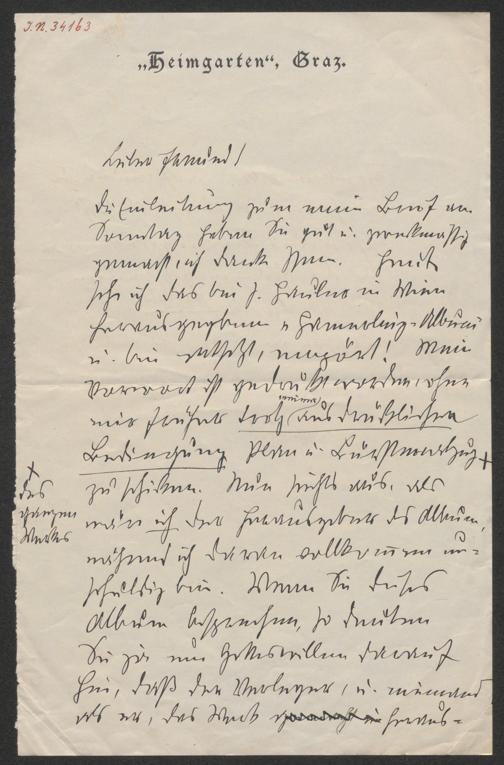 J.N. 34163
„Heimgarten“, Graz.
Lieber Freund!
Die Einleitung zum mein Brief am
Sonntag haben Sie gut u. zweckmässig
gemacht, ich danke Ihnen. Heute
sehe ich das bei J. in Wien
herausgegebene „Hamerling-Album
u. bin entsetzt, empört! Mein
Vorwort ist gedruckt worden, ohne
mir früher trotz meiner ausdrücklichen
Bedingung Plan u. Bürstenabzug +
zu schicken. Nun sieht's aus, als
+
des
ganzen
Werkes
wäre ich der Herausgeber des Album,
während ich daran vollkommen un-
schuldig bin. Wenn Sie dieses
Album besprechen, so deuten
Sie ja um Gotteswillen darauf
hin, daß der Verleger, u. niemand
als er, das Werk heraus-